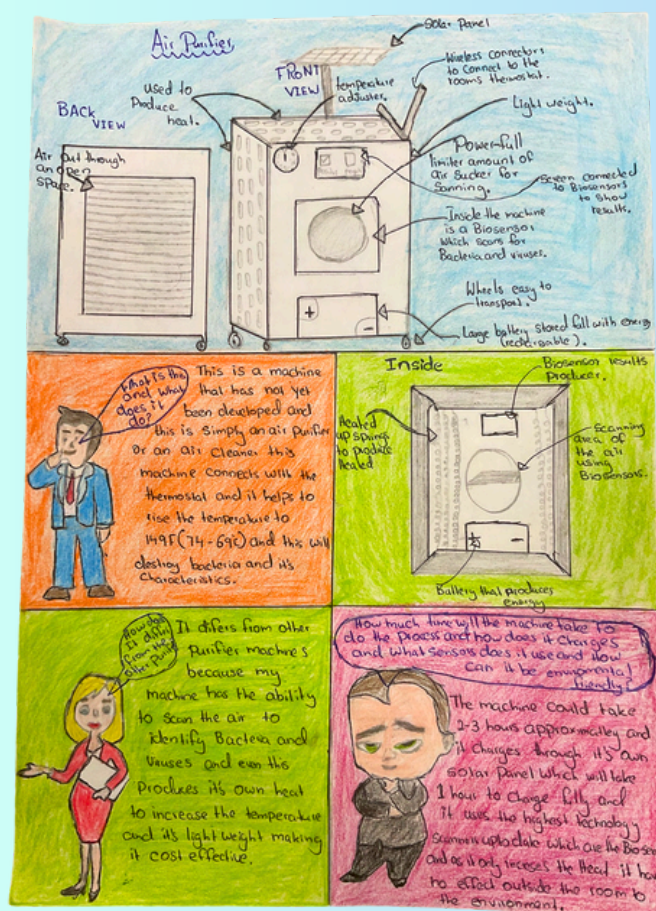 Air Purifier
Solar Panel
FRONT
VIEW
BACK
VIEW
used to
Produce
heat.
temperature
adjuster.
Wireless connectors
to Connect to the
rooms thermostat.
Light weight.
Air out through
an open
space.
Powerfull
limiter amount of
air sucker for
Sanning.
Screen connected
to Biosensors
to show
results.
Inside the machine
is a Biosensor
which scans for
Bacteria and viruses.
Wheels easy to
transport.
Large battery stored full with energy
(rechargable).
+
-
What is this
and what
does it
do?
This is a machine
that has not yet
been developed and
this is simply an air purifier
or an air Cleaner this
machine connects with the
thermostat and it helps to
rise the temperature to
149F(74-69c) and this will
destroy bacteria and it's
Characteristics.
Inside
Biosensor results
Producer.
Heated
up springs
to produce
Heated
Scanning
area of
the air
using
Biosensors.
+
-
Battery that produces
energy
How does
It differ
from the
other Purifier
It difers from other
Purifier machines
because my
machine has the ability
to scan the air to
identify Bacteria and
Viruses and even this
Produces it's own heat
to increase the temperature
and it's light weight making
it cost effective.
How much time will the machine take to
do the process and how does it charges
and what sensors does it use and How
can it be
friendly?
The machine could take
2-3 hours approximatley and
it Charges through it's own
solar Panel which will take
1 hour to charge fully and
it uses the highest technology
scanner is uptodate which are the
and as it only increses the Head it
no effect outside the room to
the environment.